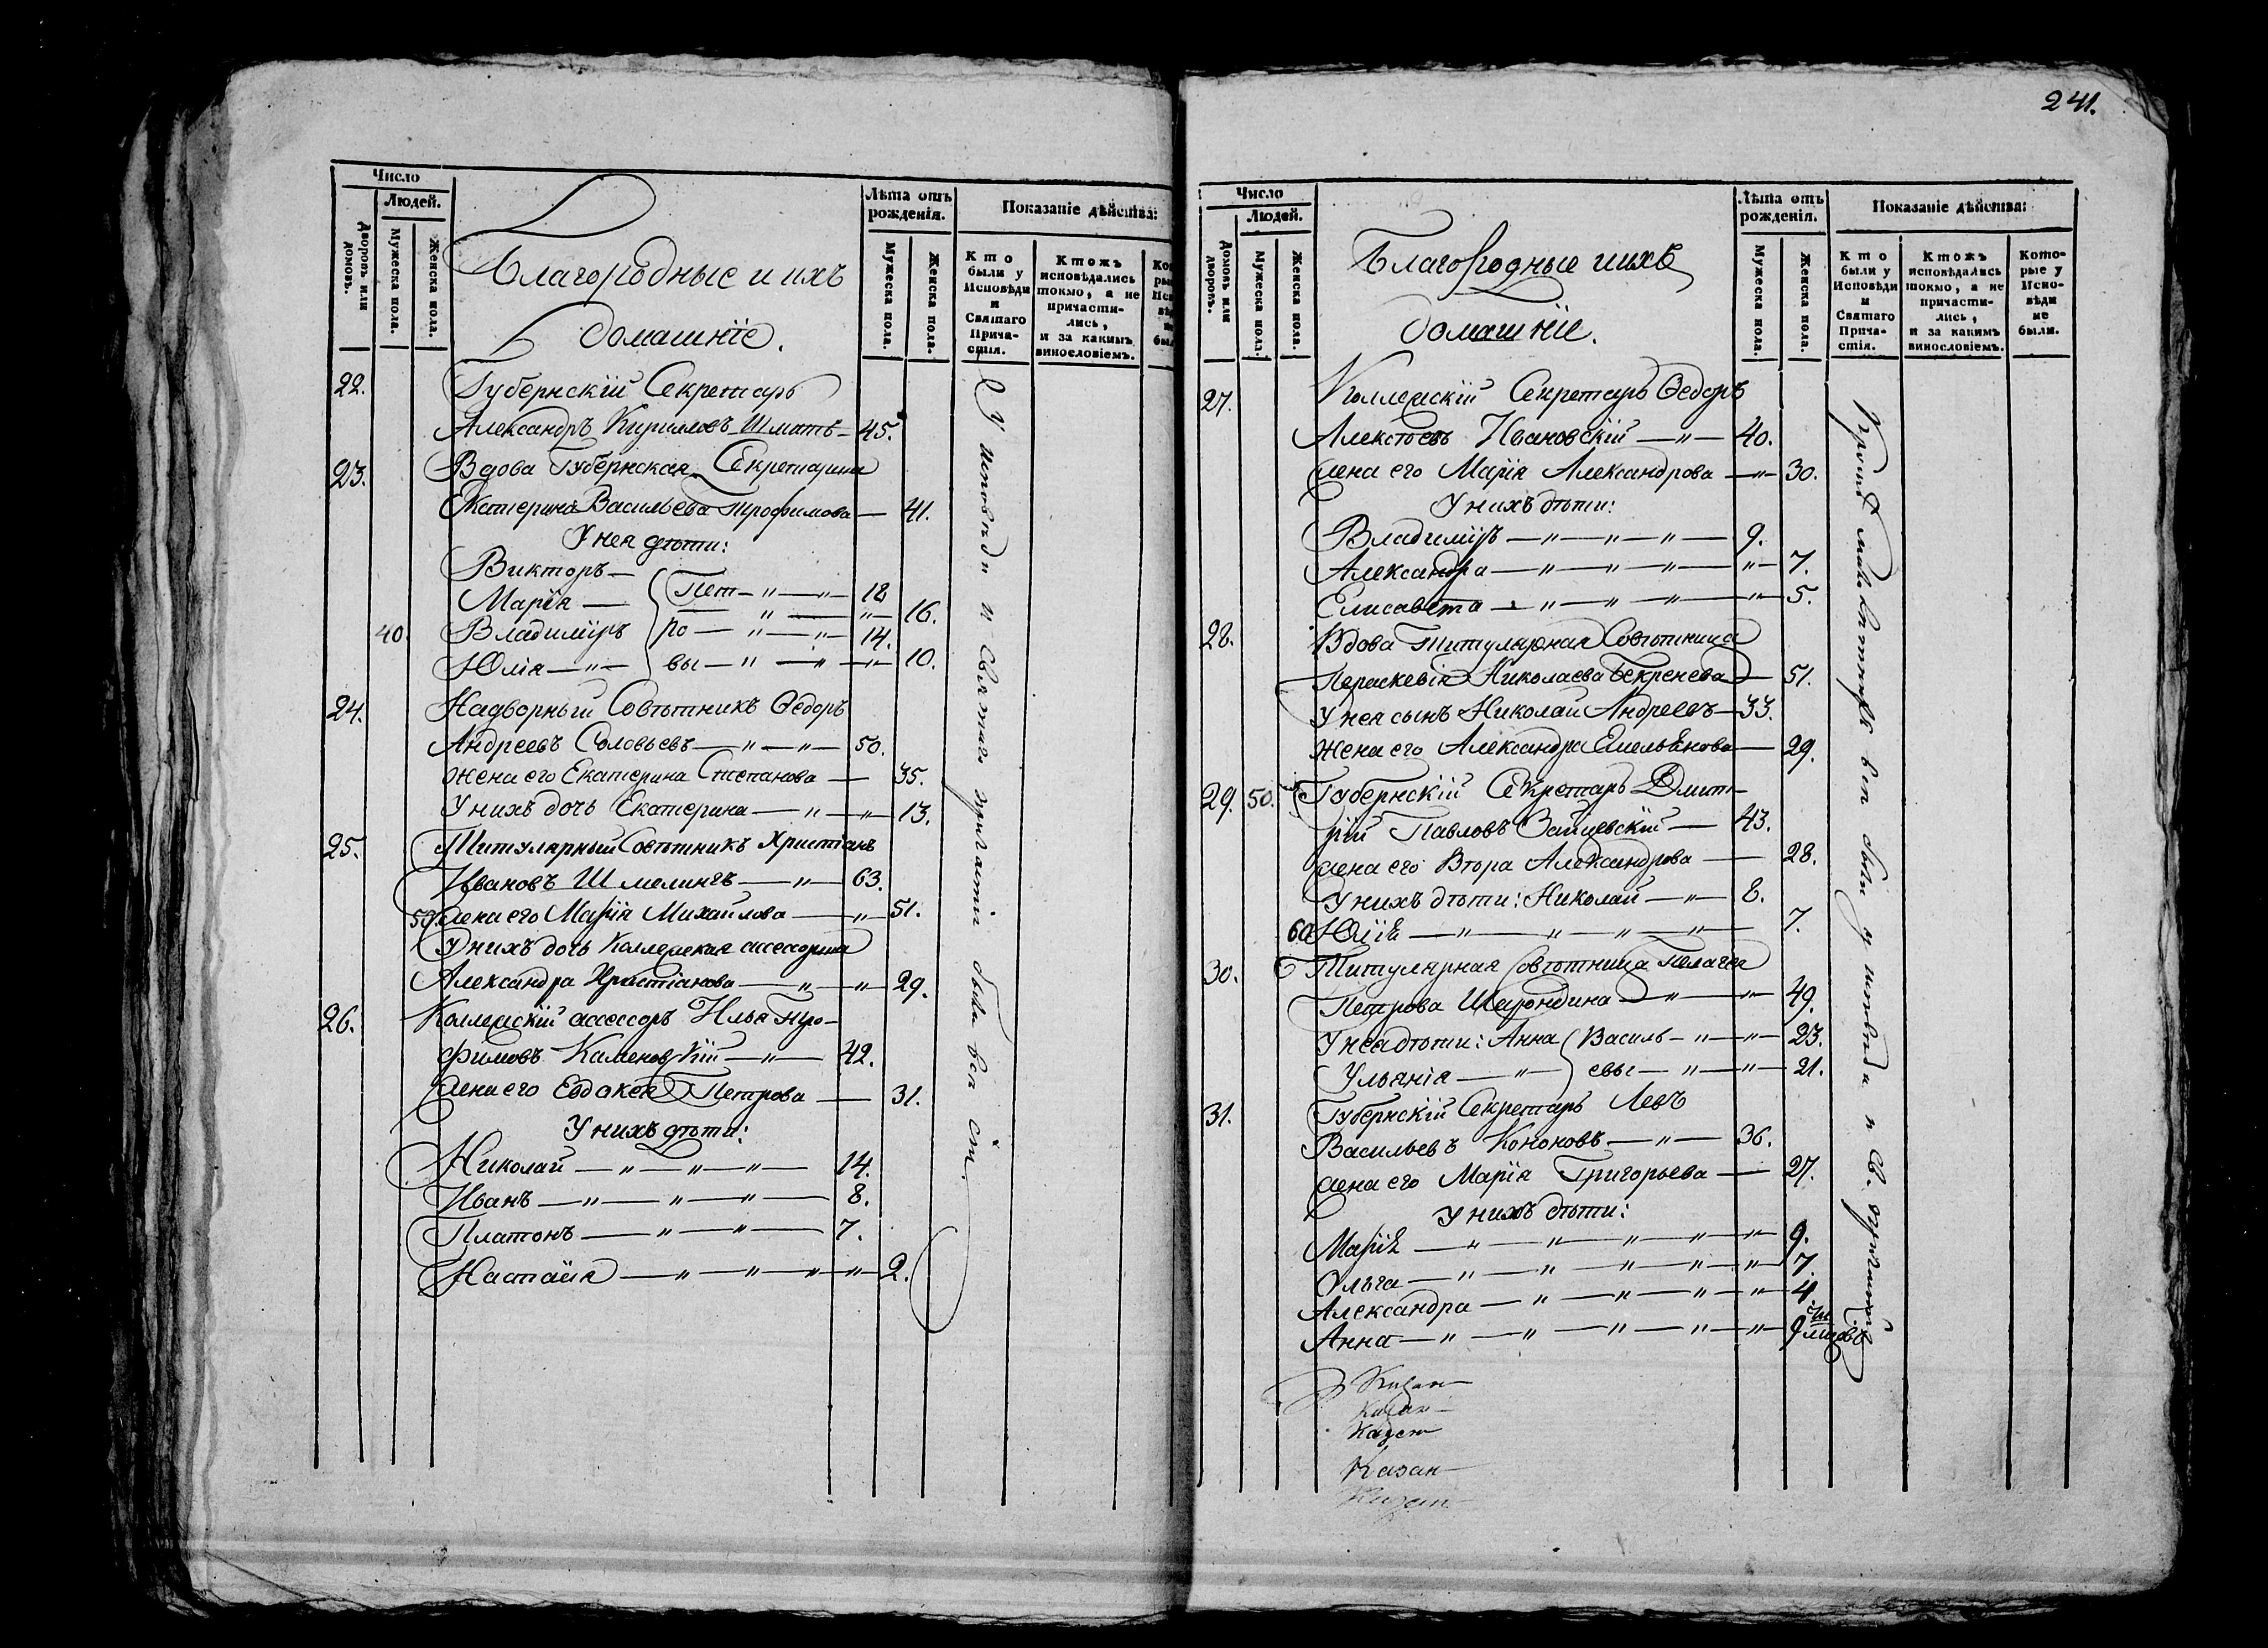 241.
Число
Людей.
Дворовъ или домовъ.
Мужеска пола.
Женска пола.
Благородные и ихъ
домашніе.
Лѣта отъ рожденія.
Мужеска пола.
Женска пола.
Показаніе дѣйства:
Кто были у Исповѣди и Святаго Прича-стія.
Ктожъ исповѣдались токмо, а не причасти-лись, и за какимъ винословіемъ.
22. Губернскій Секретарь
Александръ Кириловъ Шматъ — 45.
23. Вдова Губернская Секретарша
Екатерина Васильева Трофимова — 41.
У нея дѣти:
Викторъ — Пет — " — " — 18
Марія — " — " — 16.
40. Владиміръ ро — " — " — 14.
Юлія — " — вы — " — " — " — 10.
24. Надворный Совѣтникъ Ѳедоръ
Андреевъ Соловьевъ — " — " — 50.
жена его Екатерина Степанова — 35.
У нихъ дочь Екатерина — " — " — 13.
25. Титулярный Совѣтникъ Христіанъ
Ивановъ Шмелингъ — " — 63.
50. жена его Марія Михайлова — " — 51.
У нихъ дочь Коллежская ассесорша
Александра Христіанова — " — " — 29.
26. Коллежскій ассессоръ Илья Тро-
фимовъ Каменскій — " — 42.
жена его Евдокея Петрова — 31.
У нихъ дѣти:
Николай — " — " — " — 14.
Иванъ — " — " — " — 8.
Платонъ — " — " — 7.
Настасія — " — " — " — " — 2.
У исповѣди и Святаго причастія были всѣ сіи.
Число
Людей.
Домовъ или дворовъ.
Мужеска пола.
Женска пола.
Благородные и ихъ
домашніе.
Лѣта отъ рожденія.
Мужеска пола.
Женска пола.
Показаніе дѣйства:
Кто были у Исповѣди и Святаго Прича-стія.
Ктожъ исповѣдались токмо, а не причасти-лись, и за какимъ винословіемъ.
Кото-рые у Испо-вѣди не были.
27. Коллежскій Секретарь Ѳедоръ
Алексѣевъ Ивановскій — " — 40.
жена его Марія Александрова — " — 30.
У нихъ дѣти:
Владиміръ — " — " — " — 9.
Александра — " — " — " — " — 7.
Елисавета — " — " — " — " — 5.
28. Вдова Титулярная Совѣтница
Параскевія Николаева Бекренева — 51.
У нея сынъ Николай Андреевъ — 33.
жена его Александра Емельянова — 29.
29. 50. Губернскій Секретарь Дмит-
рій Павловъ — 43.
жена его Вѣра Александрова — 28.
У нихъ дѣти: Николай — " — 8.
60. Юлія — " — " — " — " — 7.
30. Титулярная Совѣтница Пелагея
Петрова — " — " — 49.
У нея дѣти: Анна Василь — " — " — 23.
Ульянія — " — евы — " — " — 21.
31. Губернскій Секретарь Левъ
Васильевъ Кононовъ — " — 36.
жена его Марія Григорьева — 27.
У нихъ дѣти:
Марія — " — " — " — " — " — 9.
Ольга — " — " — " — " — " — 7.
Александра — " — " — " — " — " — 4.
Анна — " — " — " — " — " — 9
всѣ были у исповѣди и Св. причастія
Казан
Казан